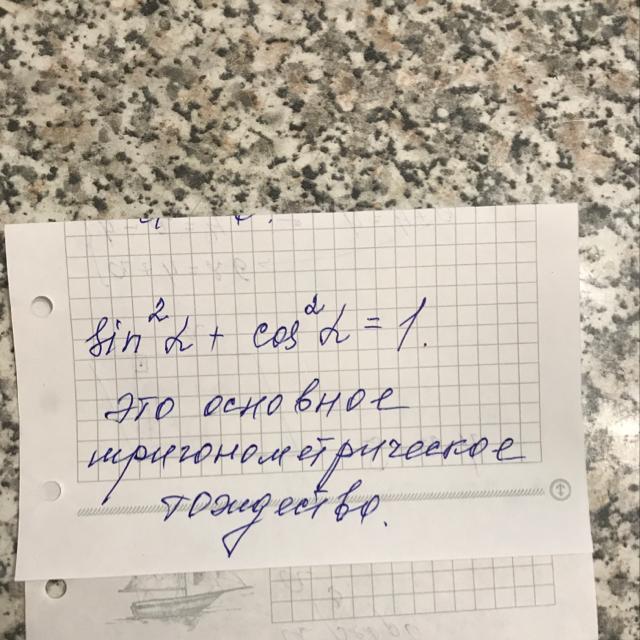 sin²α + cos²α = 1.
это основное
тригонометрическое
тождество.